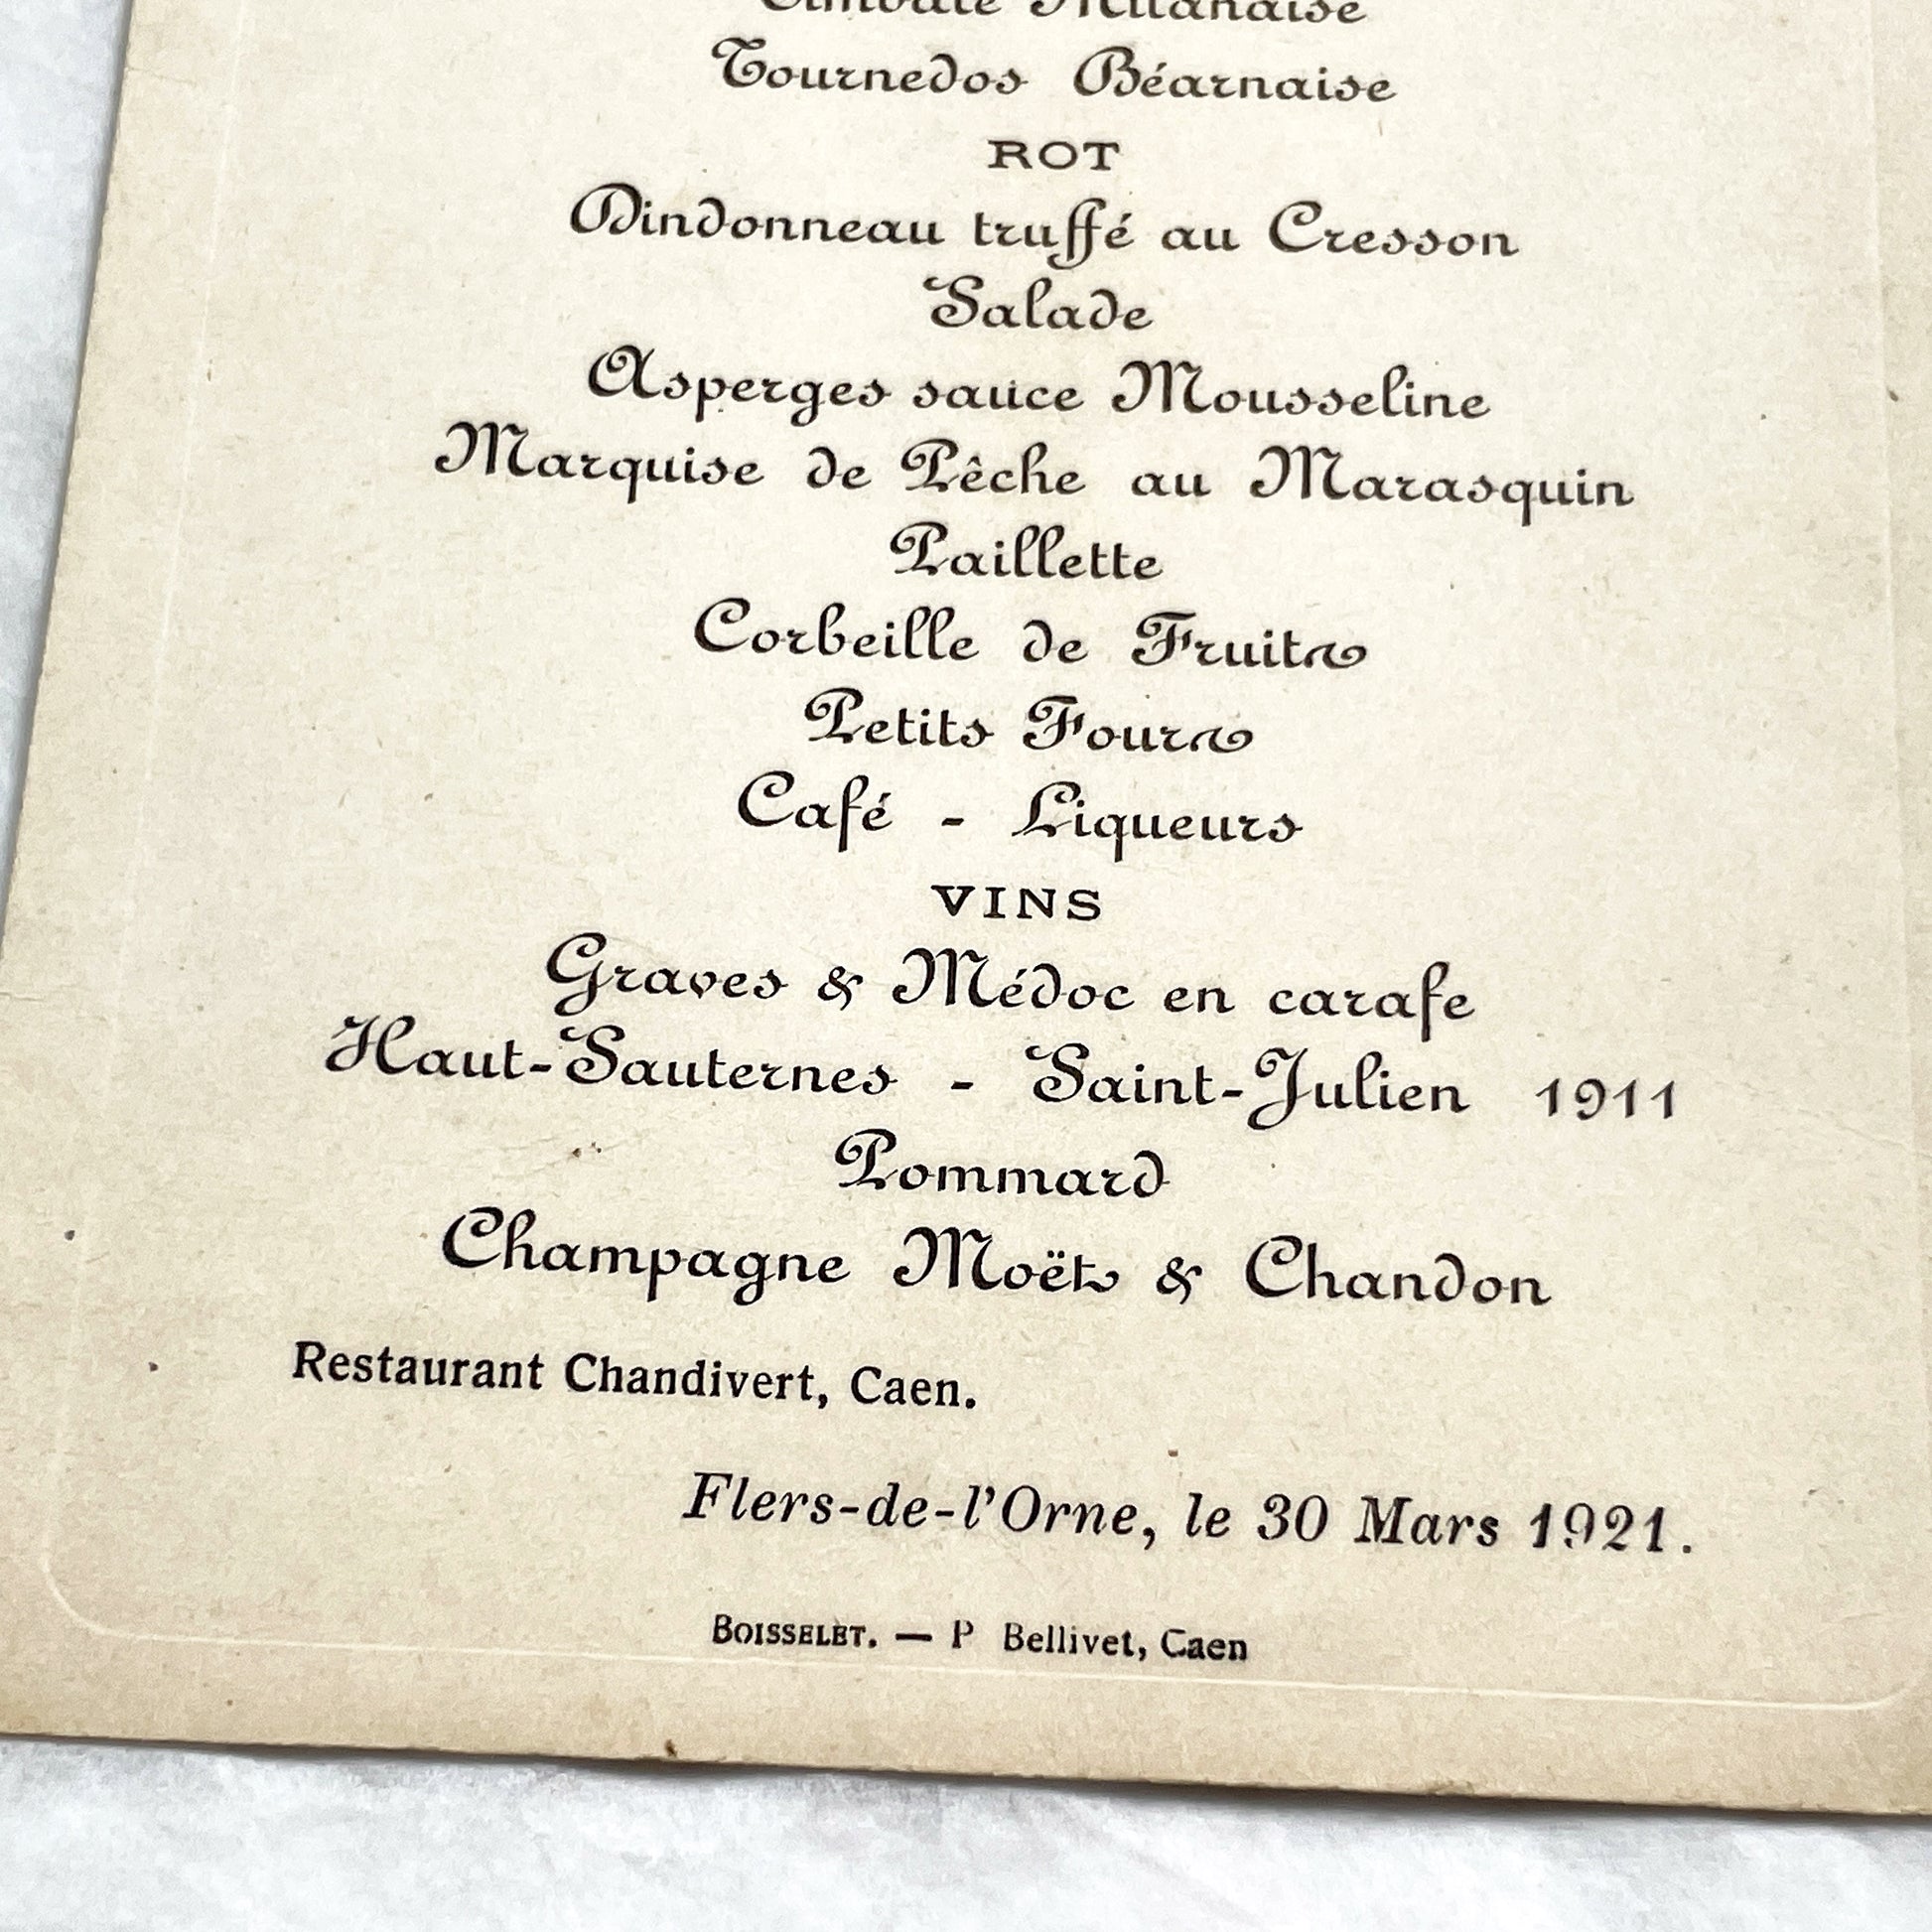 Timbale Milanaise
Tournedos Béarnaise
ROT
Dindonneau truffé au Cresson
Salade
Asperges sauce Mousseline
Marquise de Pêche au Marasquin
Paillette
Corbeille de Fruits
Petits Fours
Café - Liqueurs
VINS
Graves & Médoc en carafe
Haut-Sauternes - Saint-Julien 1911
Pommard
Champagne Moët & Chandon
Restaurant Chandivert, Caen.
Flers-de-l'Orne, le 30 Mars 1921.
BOISSELET. — P Bellivet, Caen